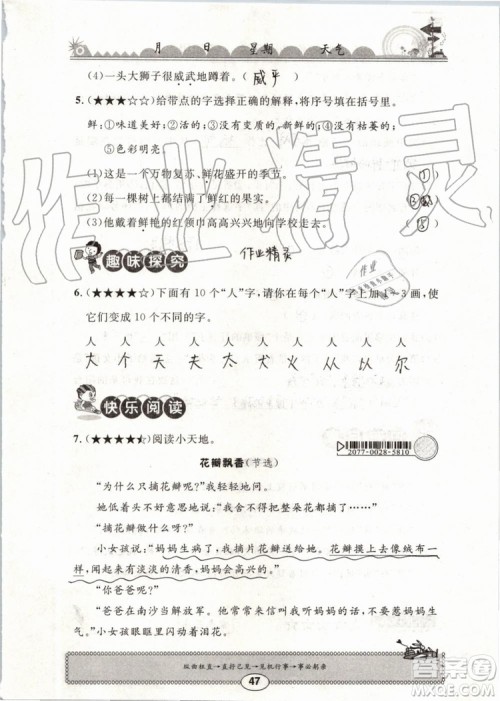 月 日 星期 天气
(4)一头大狮子很威武地蹲着。( 威平 )
5.(★★★☆)给带点的字选择正确的解释,将序号填在括号里。
鲜:①味道美好;②活的;③没有变质的、新鲜的;④没有枯萎的;
⑤色彩明亮
(1)这是一个万物复苏、鲜花盛开的季节。 (①)
(2)每一棵树上都结满了鲜红的果实。
(3)他戴着鲜艳的红领巾高高兴兴地向学校走去。 (⑤)
作业精灵
趣味探究
作业精灵
6.(★★★★)下面有10个“人”字,请你在每个“人”字上加1~3画,使
它们变成10个不同的字。
人 人 人 人 人 人 人 人 人 人
大 个 天 夫 太 犬 火 从 以 尔
快乐阅读
7.(★★★★)阅读小天地。
2077-0028-5810
花瓣飘香(节选)
“为什么只摘花瓣呢?”我轻轻地问。
她低着头不好意思地说:“我舍不得把整朵花都摘了……”
“摘花瓣做什么呀?”
小女孩说:“妈妈生病了,我摘片花瓣送给她。花瓣摸上去像绒布一
样,闻起来有淡淡的清香,妈妈会高兴的。”
“你爸爸呢?”
“爸爸在南沙当解放军。他常常来信叫我听妈妈的话,不要惹妈妈生
气。”小女孩眼眶里闪动着泪花。
47
答案圈